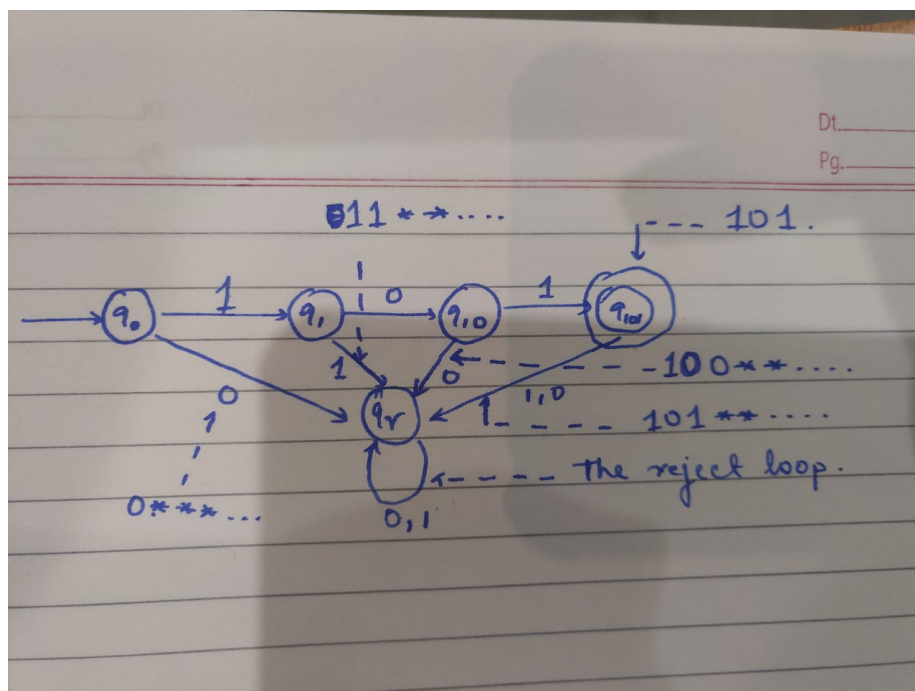 Dt.
Pg.
11 * * ....
--- 101.
1
0
1
q0
q1
q10
q101
1
0
100 * * ....
0
1,0
qr
101 * * ....
The reject loop.
0 * * * ...
0,1